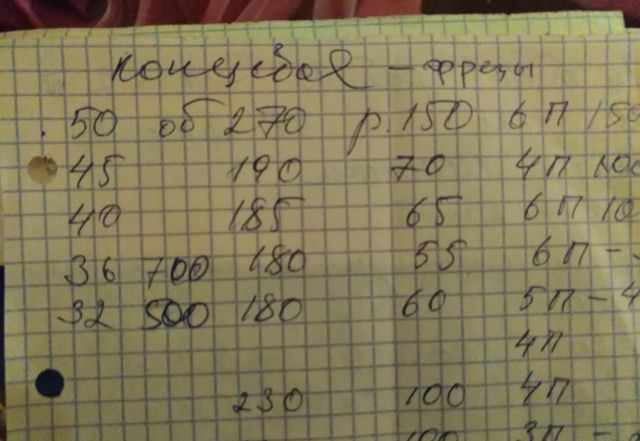 концевая - фрезы
50 об 270 р.150 6П 150
45 190 70 4П 100
40 185 65 6П 10
36 700 180 55 6П -
32 500 180 60 5П - 4
4П
230 100 4П
100 3П -